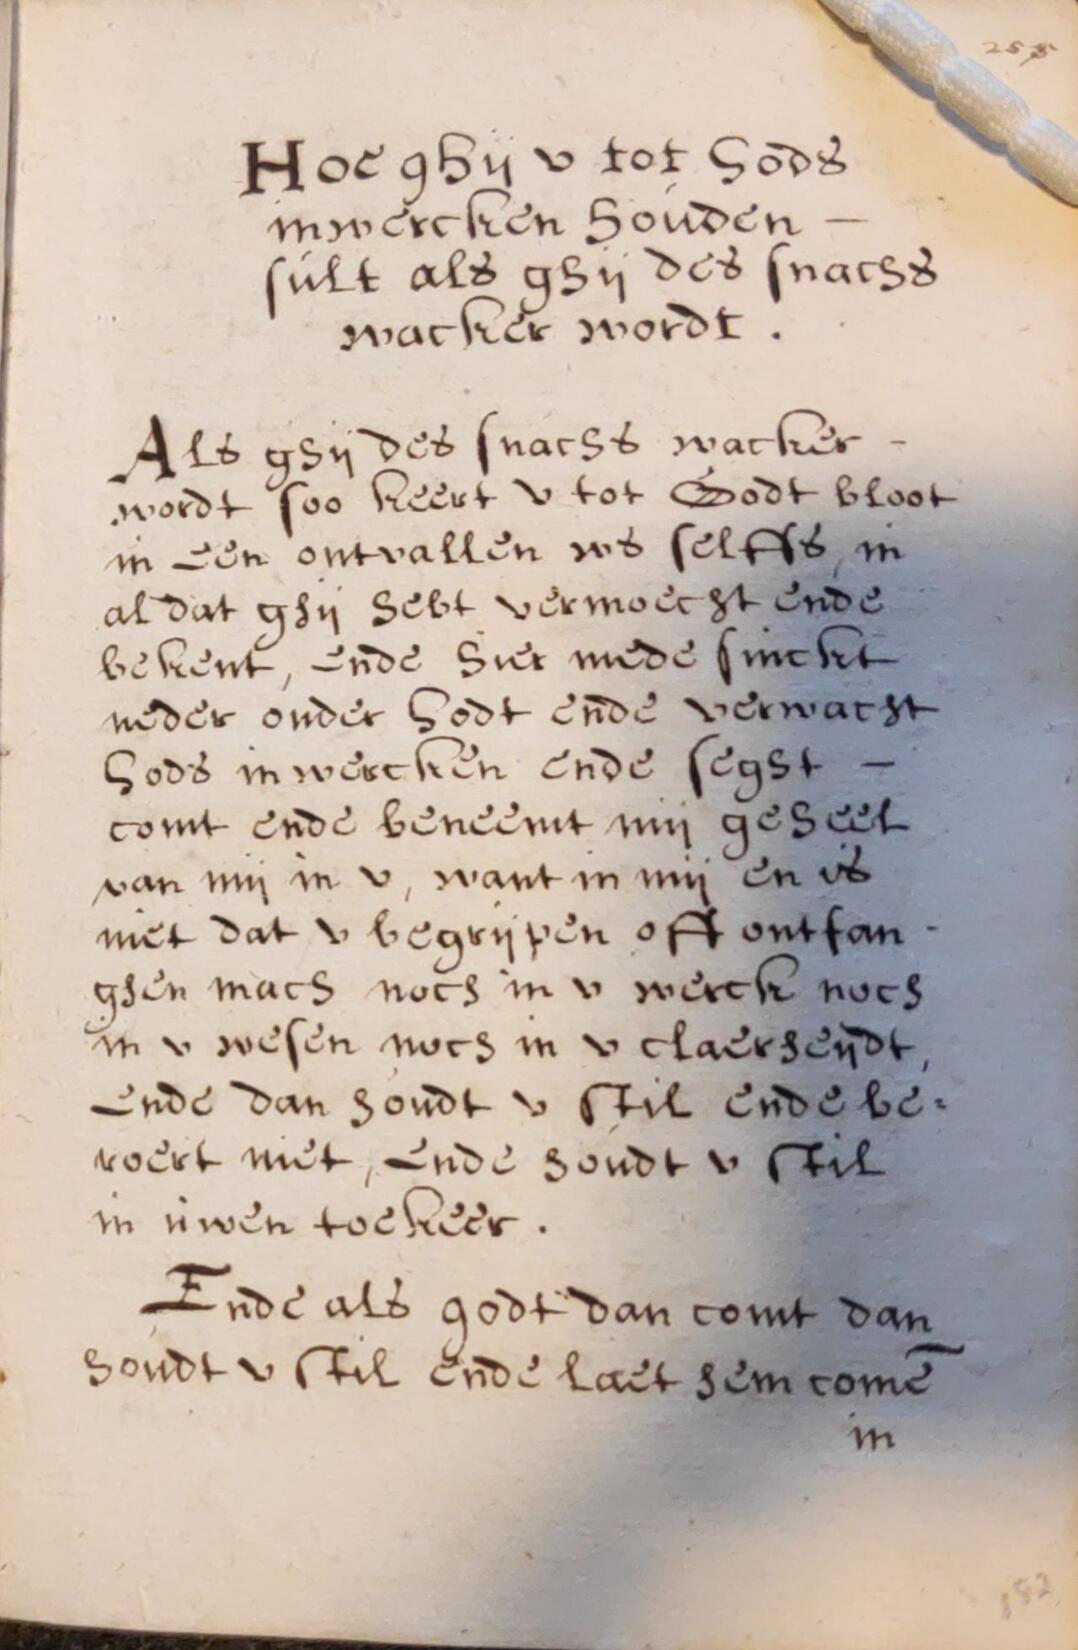 Hoe ghij v tot Gods
inwercken houden –
sult als ghij des snachs
wacker wordt .
Als ghij des snachs wacker -
wordt soo keert v tot Godt bloot
in een ontvallen ws selffs, in
al dat ghij hebt vermoecht ende
bekent, ende hier mede sinckt
neder onder Godt ende verwacht
Gods inwercken ende seght –
comt ende beneemt mij geheel
van mij in v, want in mij en is
niet dat v begrijpen off ontfan -
ghen mach noch in v werck noch
in v wesen noch in v claerheijdt,
ende dan houdt v stil ende be=
roert niet, ende houdt v stil
in uwen toekeer .
Ende als godt dan comt dan
houdt v stil ende laet hem comē
in
182